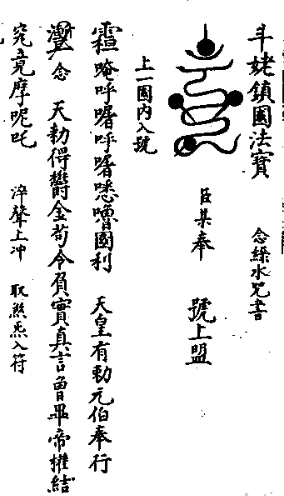 斗姥鎮國法寶 念水咒書
臣某奉 號上盟
上一圈内入號
唵呼囉呼囉悉嚕國利 天皇有勅元伯奉行
念 天勅得欝金苟令負實真言魯畢帝摧結
究竟摩呢吒 淬聲上冲 取炁入符